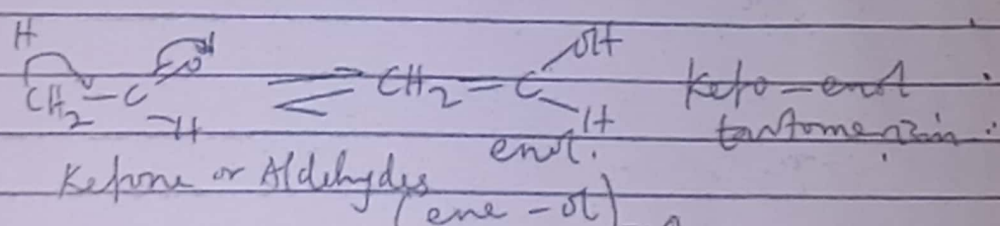 H
CH2 - C = O ⇌ CH2 = C - OH Keto-enol
- H - H tautomerism
enol.
Ketone or Aldehydes
(ene - ol)